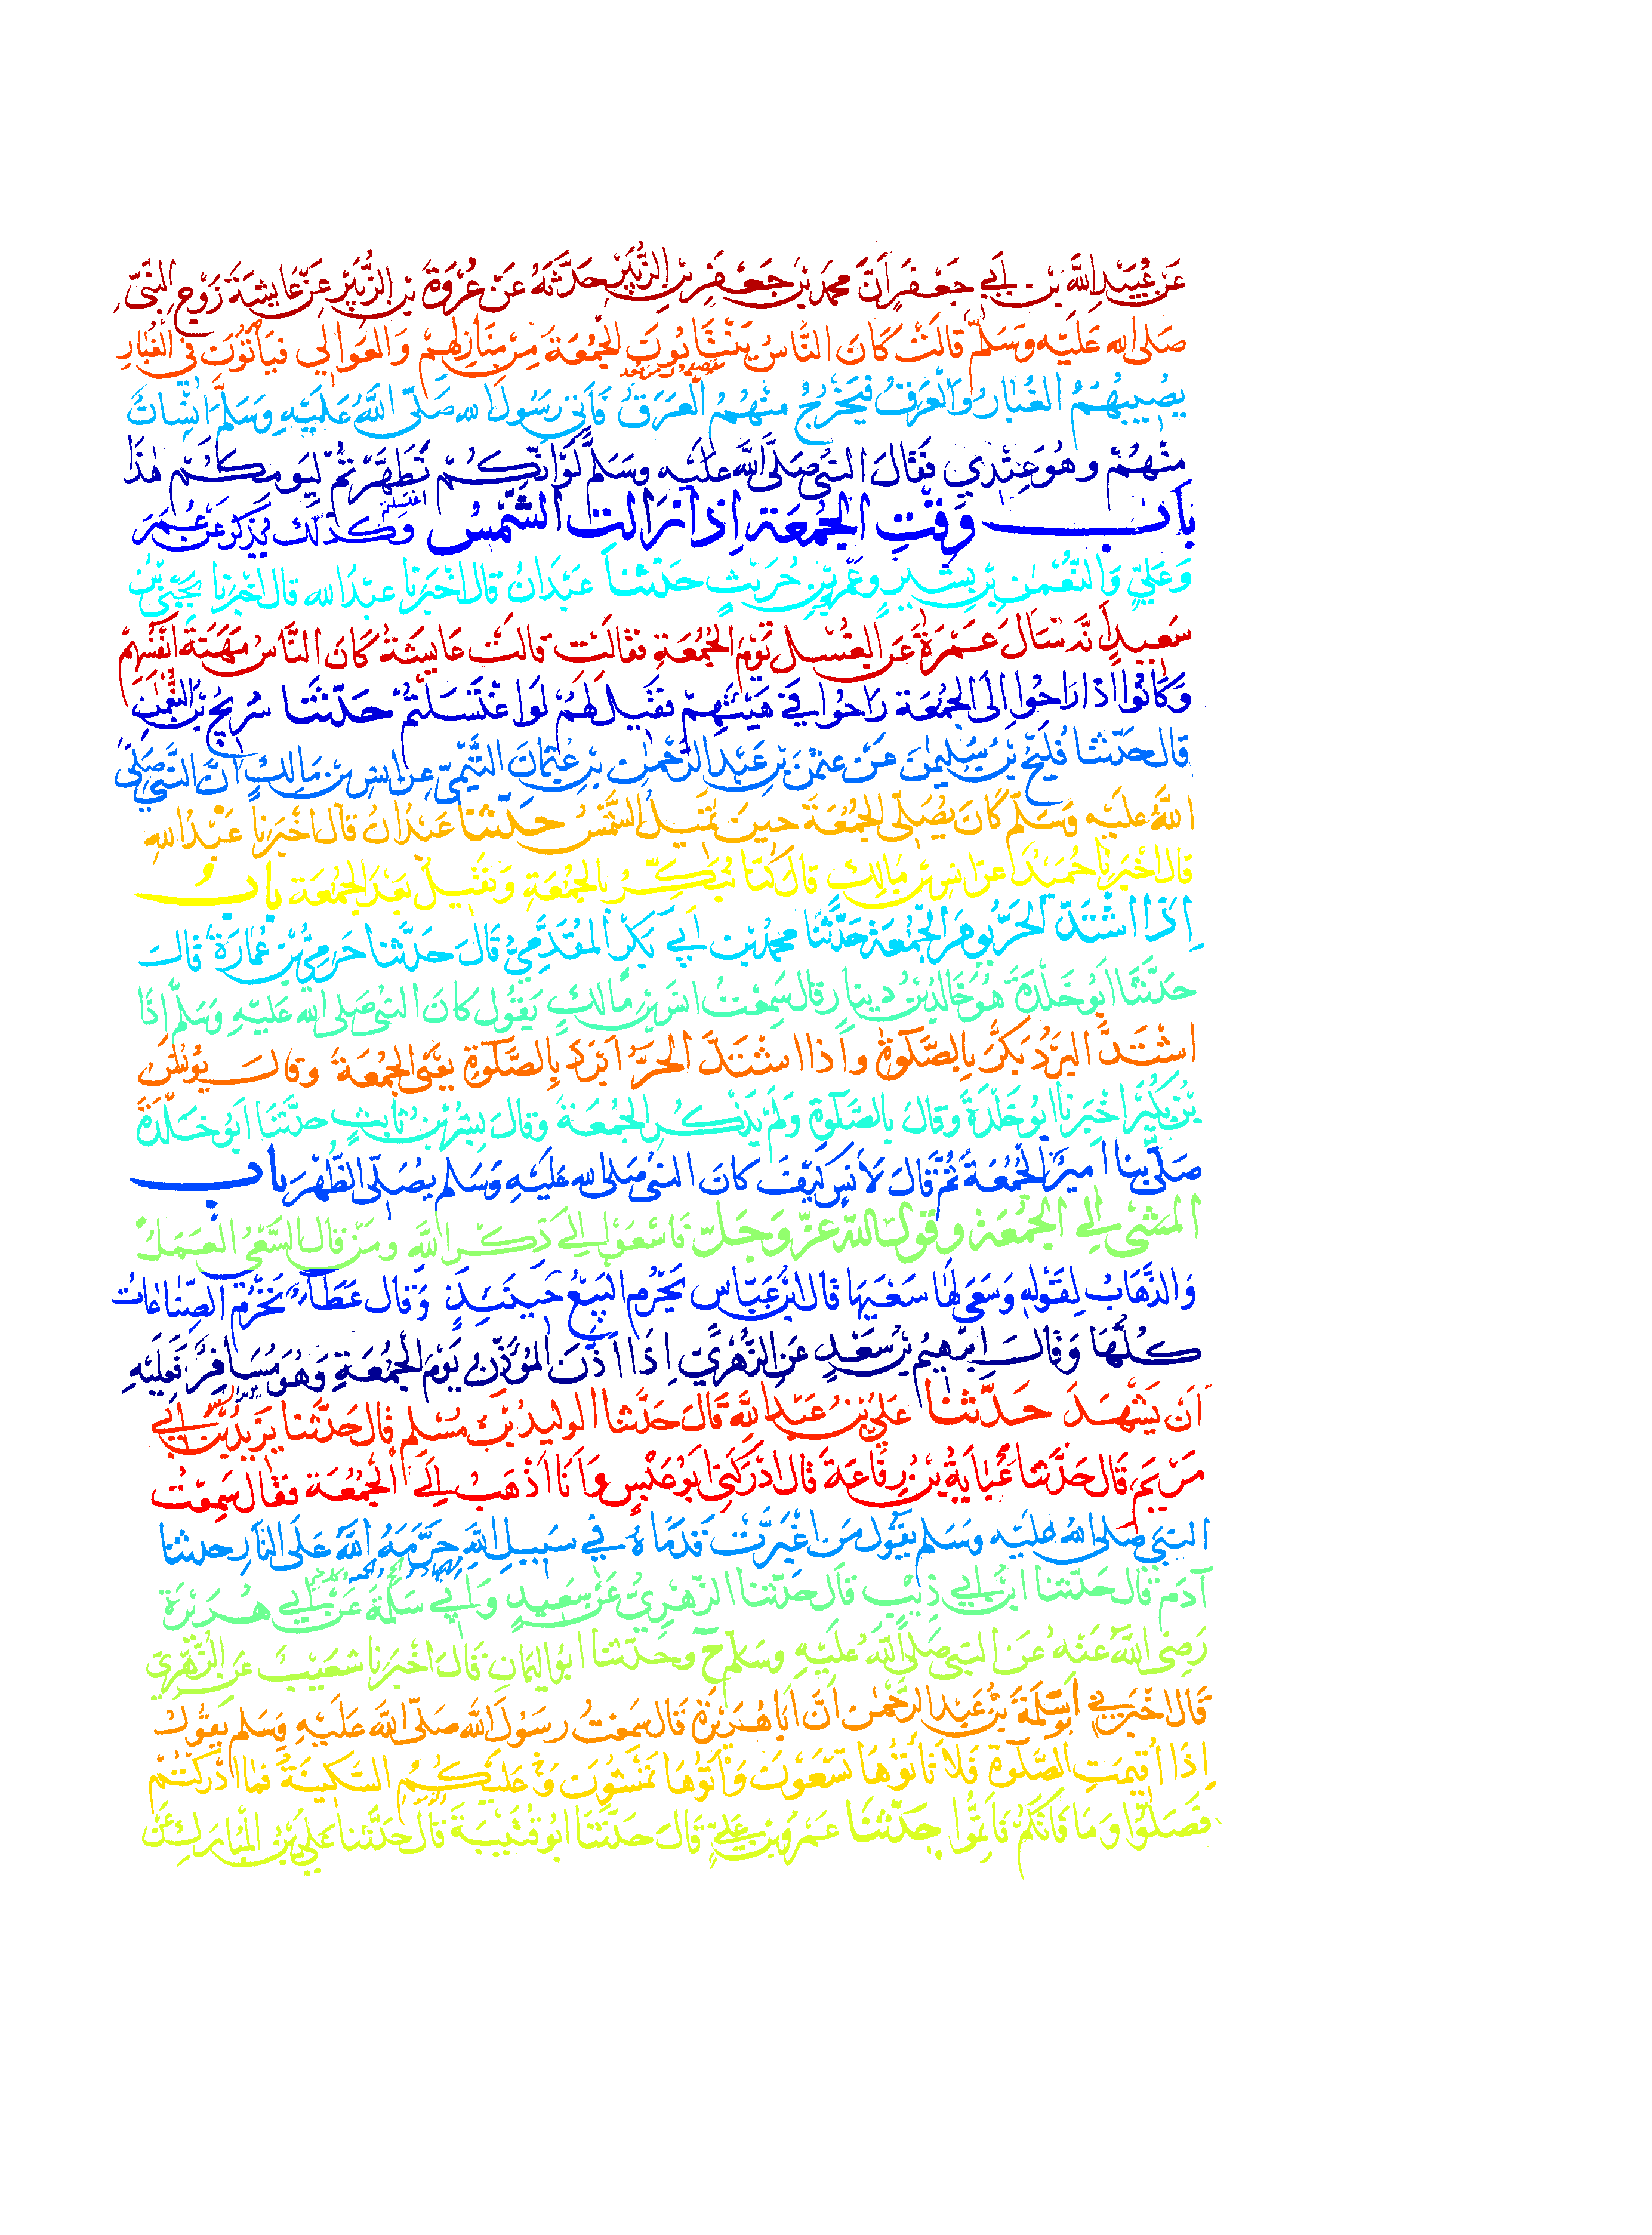 عَن عُبَيدِ اللَّهِ بن أبي جَعْفَرٍ أَنَّ محمد بْنَ جَعْفَرِ بنِ الزُّبَيْرِ حَدَّثَهُ عَنْ عُرْوَةَ بنِ الزُّبَيْرِ عَنْ عَايِشَةَ زَوْجِ النَّبِيِّ
صَلى الله عَلَيْهِ وَسَلَّمَ قَالَتْ كَانَ النَّاسُ يَنْتَابُونَ الْجُمُعَةَ مِنْ مَنَازِلِهِمْ وَالعَوَالِي فَيَأْتُونَ فِي الْغُبَارِ
يُصِيبُهُمُ الغُبَارُ وَالْعَرَقُ فَيَخْرُجُ مِنْهُمُ الْعَرَقُ فَأَتَى رَسُولَ الله صَلّى اللَّهُ عَلَيْهِ وَسَلَّمَ انْسَانٌ
مِنْهُمْ وهُوَ عِنْدِي فَقَالَ النَّبِيُّ صَلَّى اللَّهُ عَلَيْهِ وسَلَّمَ لَوْ انَّكُمْ تَطَهَّرْتُمْ لِيَومِكُمْ هٰذَا
بَاب وَقْتِ الجُمُعَة إِذَا زَالتِ الشَّمْسُ وَكَذلِكَ يُذْكَرُ عَنْ عُمَرَ
وَعَلِيٍّ وَالنُّعْمٰنِ بْنِ بَشِيرٍ وعَمْرِو بْنِ حُرَيْثٍ حَدّثنَا عَبْدَانُ قَالَ اخْبَرَنَا عبْدُ الله قال اخْبَرَنا يَحْيَى بْنُ
سَعِيدٍ أَنَّهُ سَأَلَ عَمْرَةَ عَنِ الْغُسْلِ يَوْمَ الْجُمُعَةِ فَقَالَتْ قَالَتْ عَايِشَةُ كَانَ النَّاسُ مَهَنَةَ انْفُسِهِمْ
وَكَانُوا اذَا رَاحُوا إِلَى الجُمُعَة رَاحُوا فِي هَيْئَتِهِمْ فَقِيلَ لَهُمْ لَوِ اغْتَسَلْتُمْ حَدّثَنَا سُرَيْجُ بْنُ النُّعْمٰنِ
قَال حَدّثنَا فُلَيْحُ بْنُ سُلَيمٰنَ عَنْ عثمٰنَ بْنِ عَبْدِ الرَّحْمٰنِ بْنِ عُثْمَانَ التَّيْمِيّ عن انس بْن مَالِكٍ أَنَّ النَّبِيَّ صَلَّى
اللَّهُ عَلَيْهِ وَسَلَّمَ كَانَ يُصَلّي الجُمُعَةَ حِينَ تَمِيلُ الشَّمْسُ حَدّثنَا عَبْدَانُ قَالَ اخْبَرَنَا عَبْدُ اللهِ
قَالَ اخْبَرَنَا حُمَيْدٌ عن انس بْن مَالِكٍ قال كُنَّا نُبَكِّرُ بِالْجُمُعَةِ وَنَقِيلُ بَعْدَ الْجُمُعَة بَابُ
إِذَا اشْتَدَّ الْحَرُّ يَوْمَ الْجُمُعَةِ حَدَّثَنَا محمدُ بْن أَبِي بَكْرٍ المُقَدَّمِيُّ قَالَ حَدَّثنا حَرَمِيُّ بْنُ عُمَارَةَ قَالَ
حَدَّثَنَا ابُو خَلْدَةَ هُوَ خَالدُ بْنُ دِينَارٍ قَال سَمِعْتُ انَسَ بْنَ مَالكٍ يَقُولُ كَانَ النَّبِيُّ صَلى الله عَلَيْهِ وَسَلَّمَ إِذَا
اشْتَدَّ الْبَرْدُ بَكَّرَ بِالصَّلٰوةِ وإِذَا اشْتَدَّ الحَرُّ أَبْرَدَ بِالصَّلٰوةِ يَعْنِي الجُمُعَةَ وقالَ يُونُسُ
بْنُ بُكَيْرٍ اخْبَرَنَا ابُو خَلْدَةَ وَقَالَ بِالصَّلٰوةِ وَلَمْ يَذْكُرِ الْجُمُعَةَ وَقَالَ بِشْرُ بْنُ ثَابِتٍ حدَّثَنَا أَبُو خَلْدَةَ
صَلَّى بِنَا امِيرٌ الْجُمُعَةَ ثُمَّ قَالَ لِأَنَسٍ كَيْفَ كَانَ النَّبِيُّ صَلى الله عَلَيْهِ وَسَلم يُصَلّي الظُّهْرَ بَاب
المَشْيِ إِلَي الجُمُعَة وقولِ اللّهِ عزّ وَجَلّ فَاسْعَوْا إِلَي ذِكْرِ اللَّهِ ومَنْ قَالَ السَّعْيُ العَمَلُ
وَالذَّهَابُ لِقَوْلِهِ وَسَعَى لَهَا سَعْيَهَا قَال ابْنُ عَبَّاسٍ يَحْرُمُ البَيْعُ حِينَئِذٍ وَقَال عَطَاءٌ تَحْرُمُ الصِّنَاعَاتُ
كُلُّهَا وَقَالَ ابْرَهِيمُ بْنُ سَعْدٍ عَنِ الزُّهْرِيِّ إِذَا أَذَّنَ المُؤَذِّنُ يَوْمَ الْجُمُعَةِ وَهُوَ مُسَافِرٌ فَعَلَيْهِ
أَنْ يَشْهَدَ حَدّثنَا عَلِيُّ بْنُ عَبْدِ اللَّهِ قَالَ حَدَّثَنَا الوليدُ بْنُ مُسْلِمٍ قَالَ حَدَّثَنا يَزِيدُ بْنُ أَبِي
مَرْيَمَ قَال حَدَّثنَا عَبَايَةُ بْنُ رِفَاعَةَ قَالَ ادْرَكَنِي ابُو عَبْسٍ وَأَنَا أَذْهَبُ إِلَى الْجُمُعَة فَقَال سَمِعْتُ
النبيَّ صَلى اللهُ عَلَيْه وَسَلم يَقُولُ مَنِ اغْبَرَّتْ قَدَمَاهُ فِي سَبِيلِ اللَّهِ حَرَّمَهُ اللَّهُ عَلَى النَّارِ حدثنا
آدَمُ قَال حَدّثنا ابْنُ أبي ذِيْبٍ قَالَ حَدّثنا الزُّهْرِيُّ عَنْ سَعِيدٍ وَأَبِي سَلَمَةَ عَنْ أَبِي هُرَيْرَةَ
رَضِيَ اللَّهُ عَنْهُ عَنِ النبيِّ صَلَّى اللَّهُ عَلَيْهِ وسَلَّمَ ح وحَدّثنا ابُو اليَمَانِ قَالَ اخْبَرَنا شُعَيْبٌ عَنِ الزُّهْرِيّ
قَالَ اخْبَرَنِي أَبُو سَلَمَةَ بْنُ عَبْدِ الرَّحْمٰنِ أَنَّ أَبَا هُرَيْرَةَ قَال سَمِعْتُ رسُولَ اللَّهِ صَلّى اللَّه عَلَيْهِ وَسَلم يَقُولُ
إِذَا أُقِيمَتِ الصَّلٰوةُ فَلا تَأْتُوْهَا تَسْعَوْنَ وَأْتُوْهَا تَمْشُوْنَ وَعَلَيْكُمُ السَّكِينَةُ فَمَا ادْرَكْتُمْ
فَصَلُّوْا وَمَا فَاتَكُمْ فَاتِمُّوا حَدّثنَا عَمْرُو بْن عَلِيٍّ قَالَ حَدَّثَنَا ابُو قُتَيْبَةَ قَالَ حَدّثنا عَلِيُّ بْنُ المُبَارَكِ عَنْ